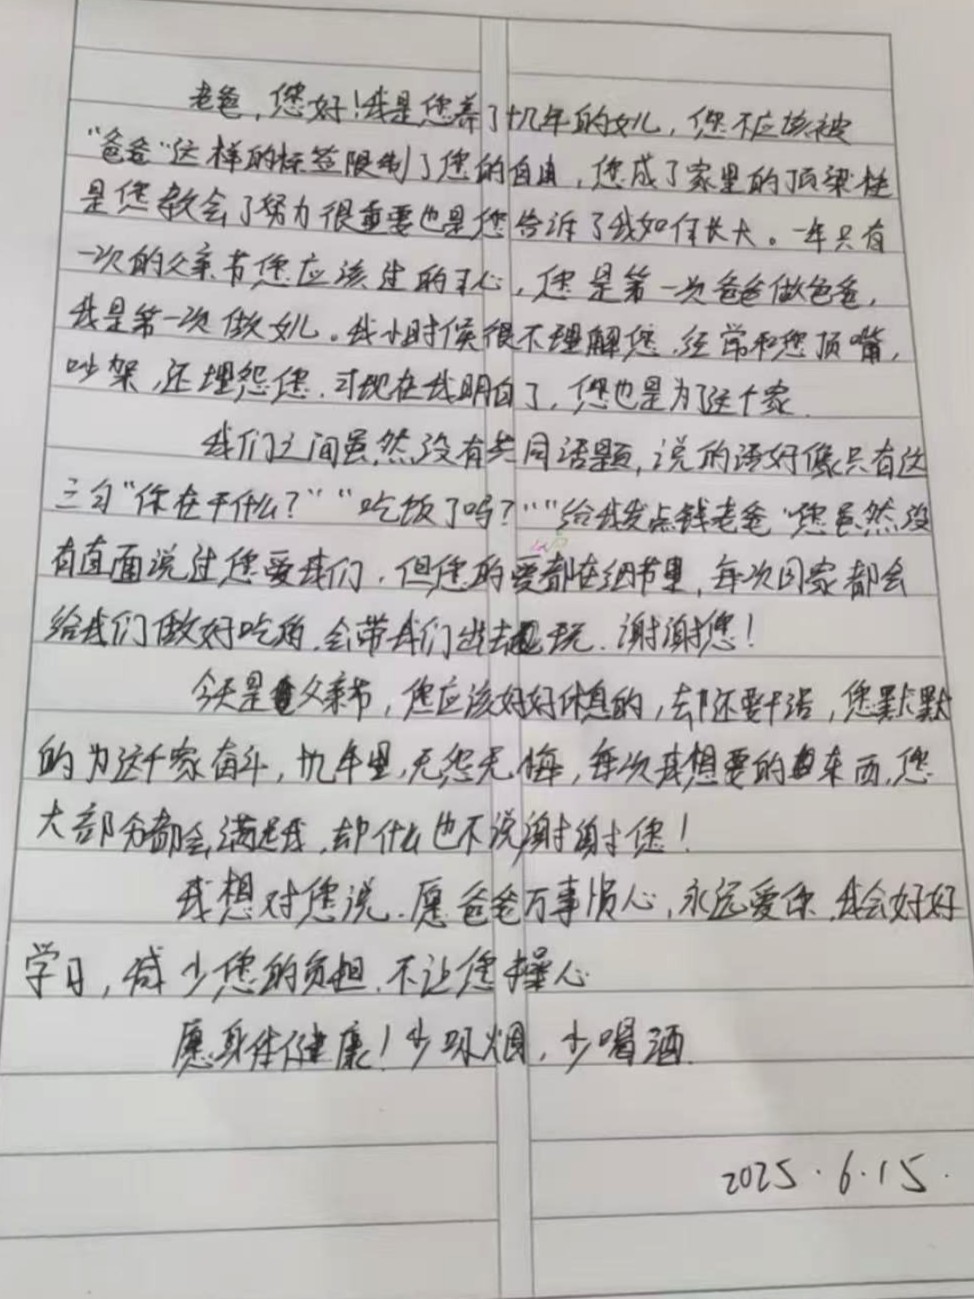 老爸，您好！我是您养了十九年的女儿，您不应该被
“爸爸”这样的标签限制了您的自由，您成了家里的顶梁柱
是您教会了努力很重要也是您告诉了我如何长大。一年只有
一次的父亲节您应该过的开心，您是第一次爸爸做爸爸，
我是第一次做女儿。我小时候很不理解您，经常和您顶嘴，
吵架，还埋怨您，可现在我明白了，您也是为了这个家
我们之间虽然没有共同话题，说的话好像只有这
三句“你在干什么？”“吃饭了吗？”“给我发点钱老爸”您虽然没
有直面说过您爱我们，但您的爱都在细节里，每次回家都会
给我们做好吃的，会带我们出去玩，谢谢您！
今天是父亲节，您应该好好休息的，却还要干活，您默默
的为这个家奋斗，九年里，无怨无悔，每次我想要的东西，您
大部分都会满足我，却什么也不说谢谢您！
我想对您说，愿爸爸万事顺心，永远爱你，我会好好
学习，减少您的负担，不让您操心
愿身体健康！少吸烟，少喝酒.
2025.6.15.